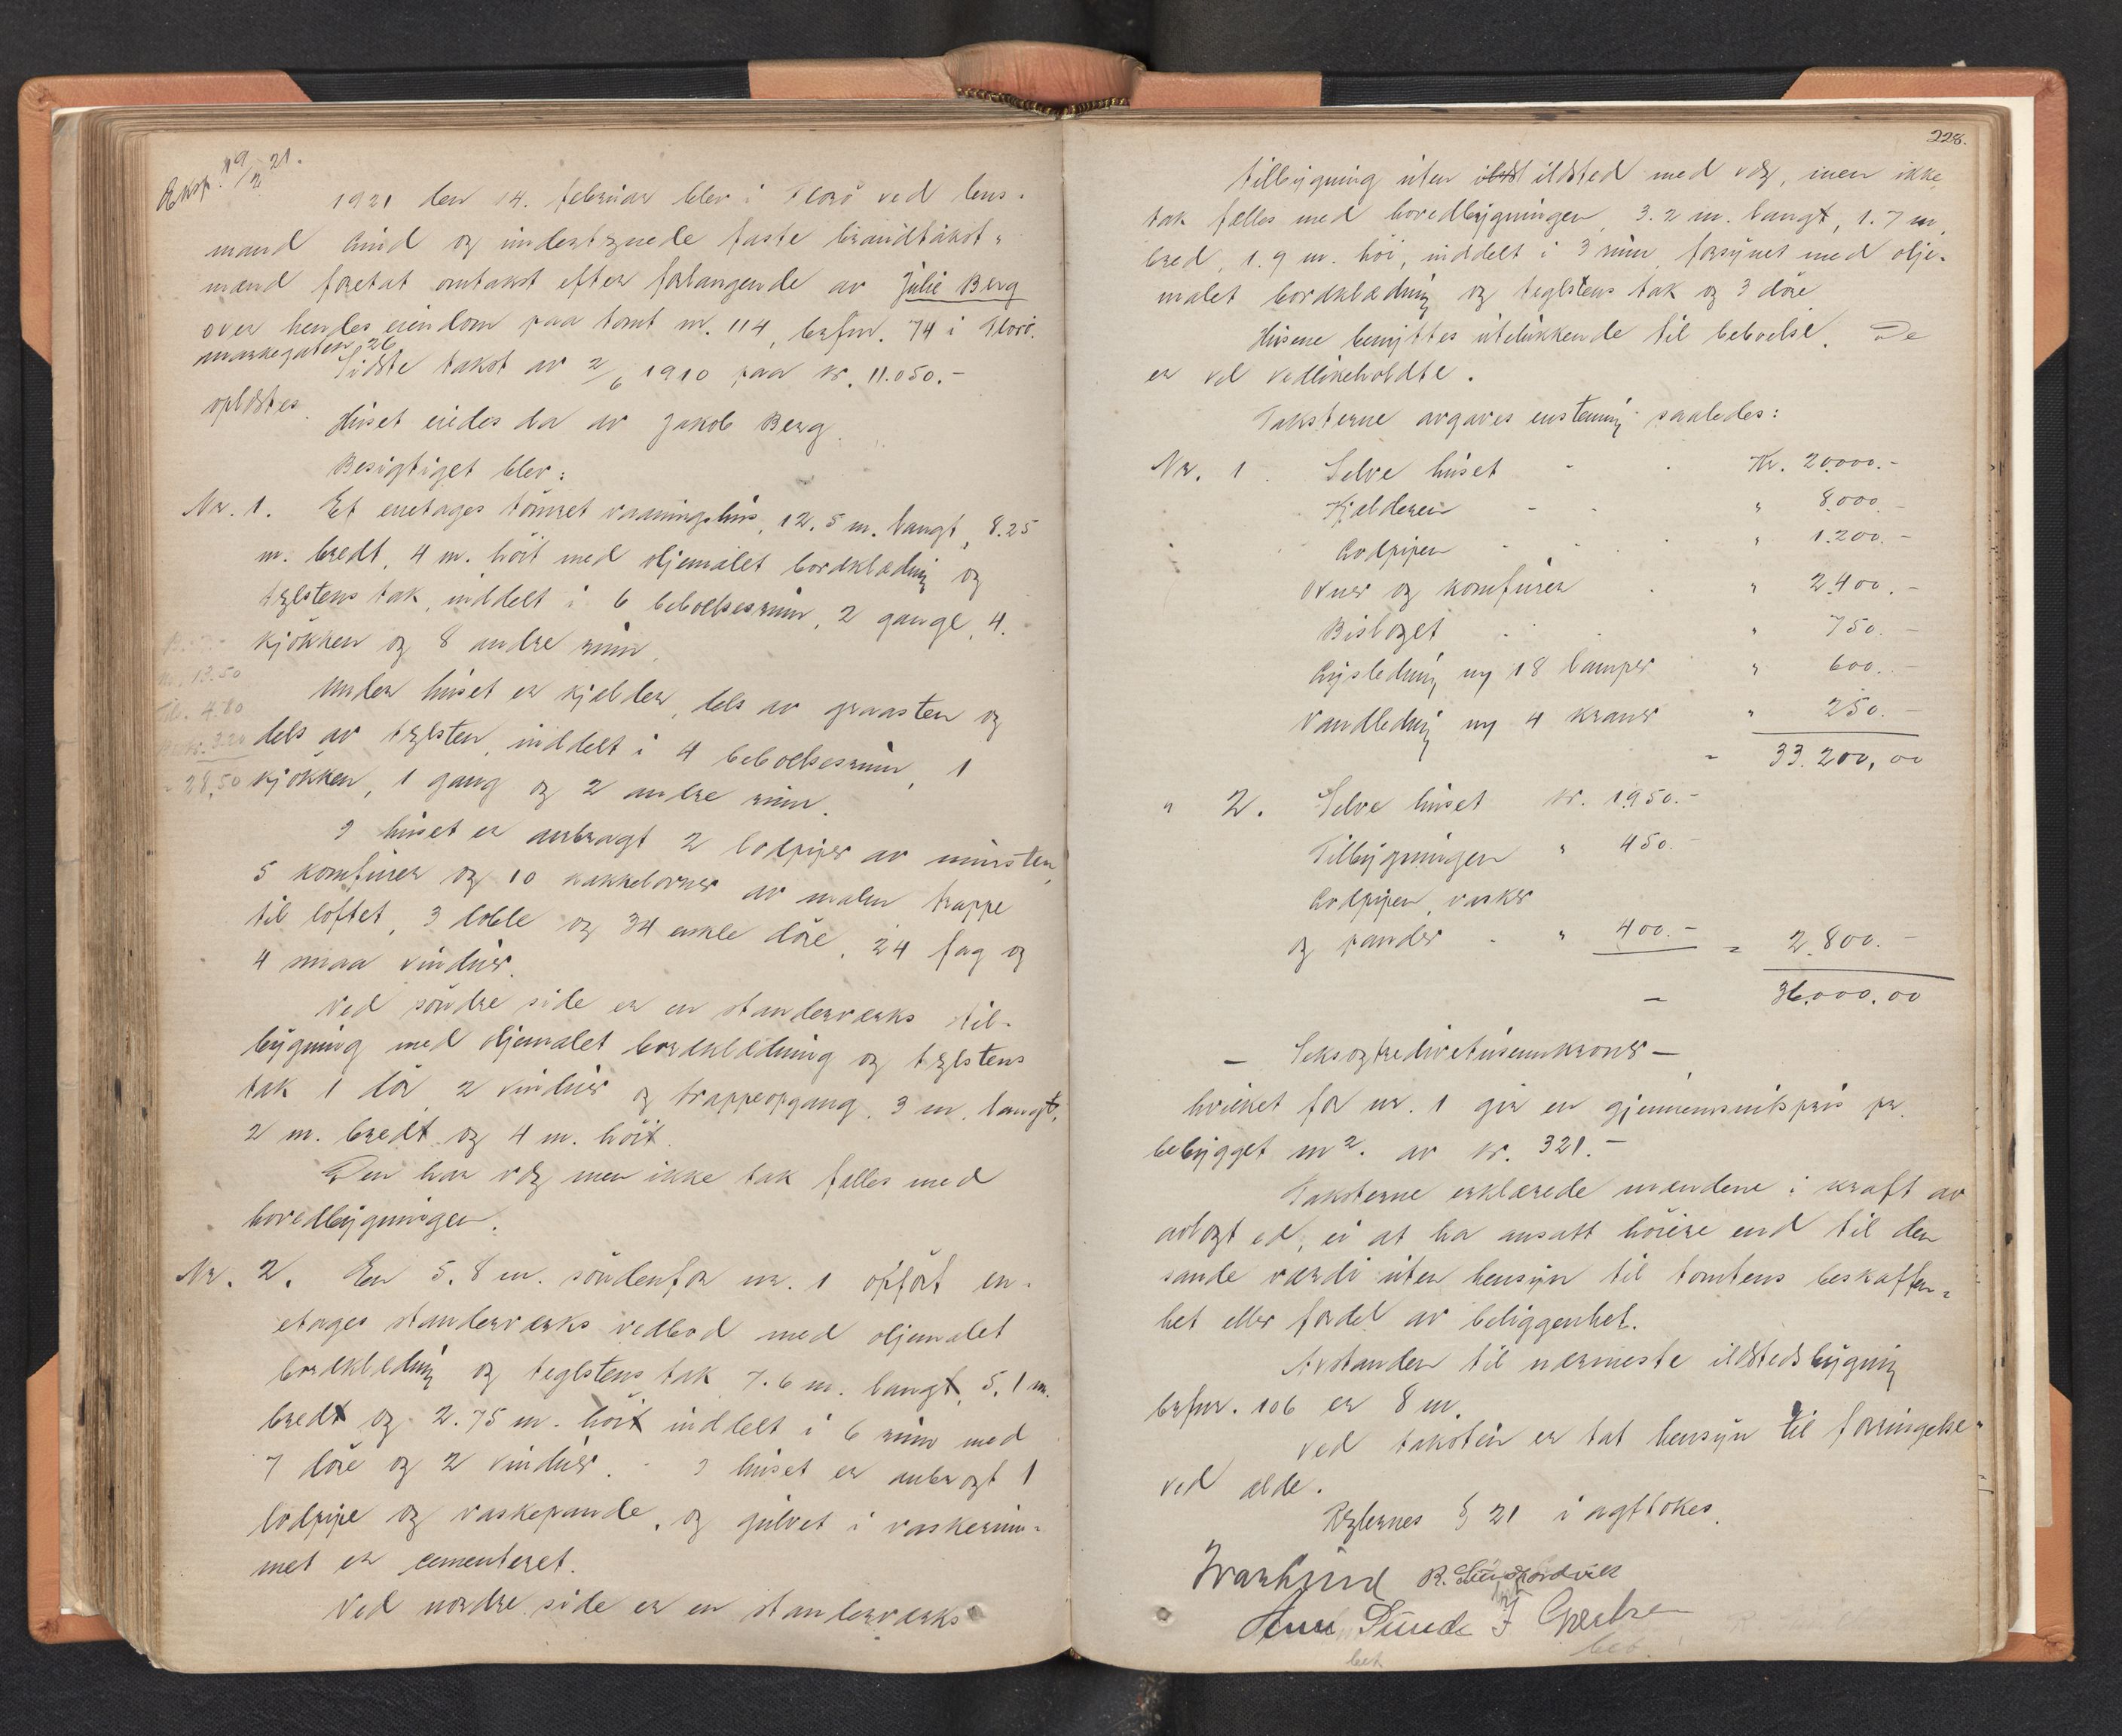 Eksp. 19/2 21.
1921 den 14. februar blev i Florö ved lens-
mand Lind og undertegnede faste brandtakst-
mænd foretat omtakst efter forlangende av Julie Berg
over hendes eiendom paa tomt nr. 114, brfnr. 74 i Florö.
markegaten 26
Sidste takst av 2/6 1910 paa kr. 11.050.-
oplæstes.
Huset eiedes da av Jakob Berg.
Besigtiget blev:
Nr. 1. Et enetages tömret vaaningshus, 12.5 m. langt, 8.25
m. bredt, 4 m. höit med oljemalet bordklædning og
teglstens tak, inddelt i 6 beboelsesrum, 2 gange, 4
kjökken og 8 andre rum.
13.50
Under huset er kjelder, dels av graasten og
4.80
dels av teglsten, inddelt i 4 beboelsesrum, 1
3.20
kjökken, 1 gang og 2 andre rum.
28,50
I huset er anbragt 2 lodpiper av mursten,
5 komfurer og 10 kakkelovner av malm, trappe
til loftet, 3 doble og 34 enkle döre, 24 fag og
4 smaa vinduer.
Ved söndre side er en standerverks til-
bygning med oljemalet bordklædning og teglstens
tak 1 dör, 2 vinduer og trappeopgang. 3 m. langt,
2 m. bredt og 4 m. höit.
Den har væg men ikke tak fælles med
hovedbygningen.
Nr. 2. En 5.8 m. söndenfor nr. 1 opfört en-
etages standerverks vedbod med oljemalet
bordklædning og teglstens tak 7.6 m. langt, 5.1 m.
bredt og 2.75 m. höit inddelt i 6 rum med
7 döre og 2 vinduer. - I huset er anbragt 1
lodpipe og vaskepande, og gulvet i vaskerum-
met er cementeret.
Ved nordre side er en standerverks
228.
tilbygning uten ildst ildsted med væg, men ikke
tak fælles med hovedbygningen, 3.2 m. langt, 1.7 m.
bred, 1.9 m. höi, inddelt i 3 rum forsynet med olje-
malet bordklædning og teglstens tak og 3 döre
Husene benyttes utelukkende til beboelse. De
er vel vedlikeholdte.
Taksterne avgaves enstemmig saaledes:
Nr. 1. Selve huset Kr. 20.000.-
Kjelderen " 8.000.-
Lodpipen " 1.200.-
Ovner og komfurer " 2.400.-
Bislaget " 750.-
Lysledning ny 18 lamper " 600.-
Vandledning ny 4 kraner " 250.-
- 33.200,00
" 2. Selve huset kr. 1950.-
Tilbygningen " 450.-
Lodpipen, vasker
og pander " 400.- = 2.800.-
- 36.000,00
- Seksogtredivetusenkroner -
hvilket for nr. 1 gir en gjennemsnitspris pr.
bebygget m². av kr. 321.-
Taksterne erklærede mændene i kraft av
avlagt ed, ei at ha ansatt höiere end til den
sande værdi uten hensyn til tomtens beskaffen-
het eller fordel av beliggenhet.
Avstanden til nærmeste ildstedsbygning
brfnr. 106 er 8 m.
Ved taksten er tat hensyn til forringelse
ved ælde.
Reglernes § 21 iagttokes.
Ivar Lind
Sunde